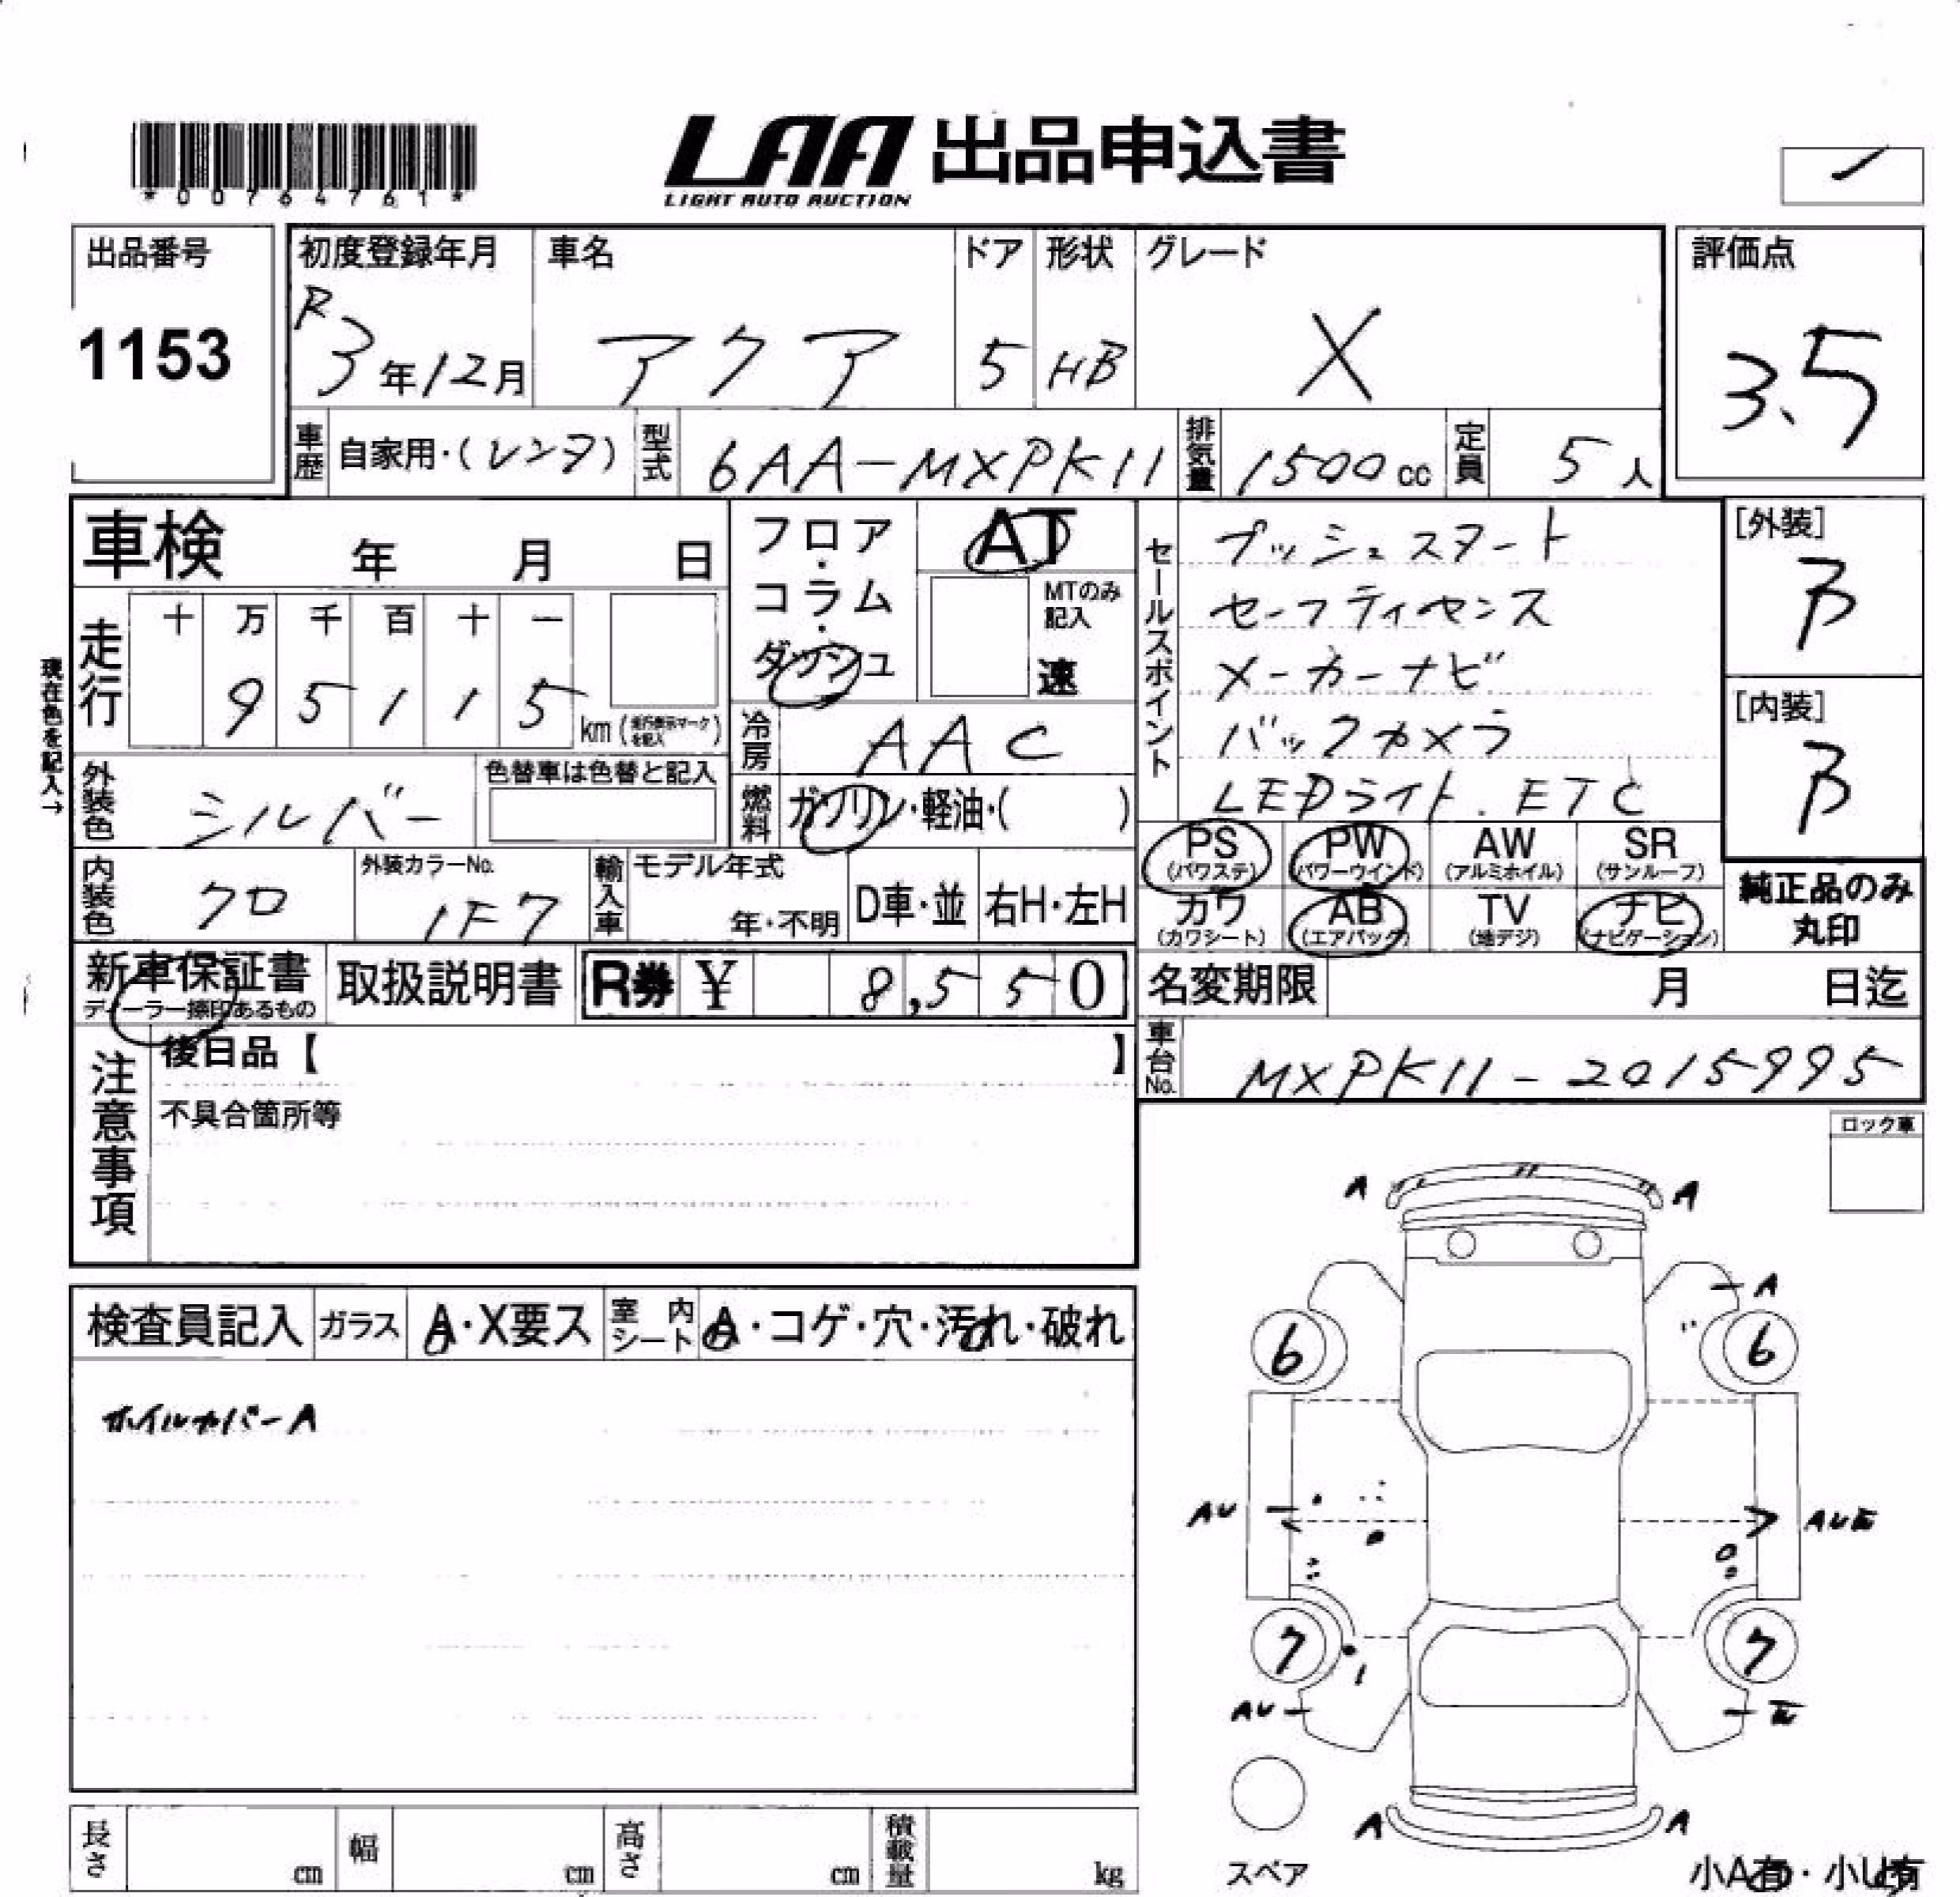 *00764761*
LAA 出品申込書
LIGHT AUTO AUCTION
出品番号
1153
初度登録年月
R3年12月
車名
アクア
ドア
5
形状
HB
グレード
X
評価点
3.5
車歴 自家用・(レンタ)
型式 6AA-MXPK11
排気量 1500cc
定員 5人
車検 年 月 日
現在色を記入→
走行
十 万 千 百 十 一
9 5 1 1 5 km(走行表示マークを記入)
フロア・コラム・ダッシュ
AT
MTのみ記入
速
冷房 AAC
燃料 ガソリン・軽油・( )
セールスポイント
プッシュスタート
セーフティセンス
メーカーナビ
バックカメラ
LEDライト.ETC
[外装]
B
[内装]
B
外装色 シルバー
色替車は色替と記入
内装色 クロ
外装カラーNo.
1F7
輸入車
モデル年式
年・不明
D車・並
右H・左H
PS (パワステ)
PW (パワーウインド)
AW (アルミホイル)
SR (サンルーフ)
カワ (カワシート)
AB (エアバッグ)
TV (地デジ)
ナビ (ナビゲーション)
純正品のみ
丸印
新車保証書
ディーラー捺印あるもの
取扱説明書
R券 ¥ 8,550
名変期限 月 日迄
車台No. MXPK11-2015995
注意事項
後日品【 】
不具合箇所等
ロック車
検査員記入
ガラス A・X要ス
室内シート A・コゲ・穴・汚れ・破れ
ホイルカバーA
A A
A
6 6
AU
7 7
AU
A A
スペア
小A有・小U有
長さ cm
幅 cm
高さ cm
積載量 kg